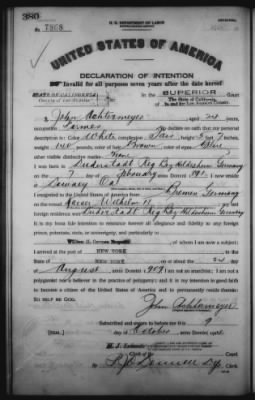 380
U. S. DEPARTMENT OF LABOR
No. 7308
UNITED STATES OF AMERICA
DECLARATION OF INTENTION
Invalid for all purposes seven years after the date hereof
In the SUPERIOR Court
The State of California
I, John Achtermeyer, aged 24 years,
occupation Farmer, do declare on oath that my personal
description is: Color White, complexion Fair, height 5 feet 7 inches,
weight 140 pounds, color of hair Brown, color of eyes Blue
other visible distinctive marks None
I was born in Luderstadt Reg Bez Hildesheim Germany
on the 7 day of February, anno Domini; I now reside
at Downey Cal
I emigrated to the United States of America from Bremen Germany
on the vessel Kaiser Wilhelm II; my last
foreign residence was Luderstadt Reg Bez Hildesheim Germany
It is my bona fide intention to renounce forever all allegiance and fidelity to any foreign
prince, potentate, state, or sovereignty, and particularly to
William II, German Emperor, of whom I am now a subject;
I arrived at the port of NEW YORK, in the
State of NEW YORK, on or about the 24 day
of August, anno Domini 1909; I am not an anarchist; I am not a
polygamist nor a believer in the practice of polygamy; and it is my intention in good faith
to become a citizen of the United States of America and to permanently reside therein:
SO HELP ME GOD.
John Achtermeyer
Subscribed and sworn to before me this 9
[SEAL] day of October, anno Domini
H. J. Lelande
Clerk of the Court.
By Clerk.